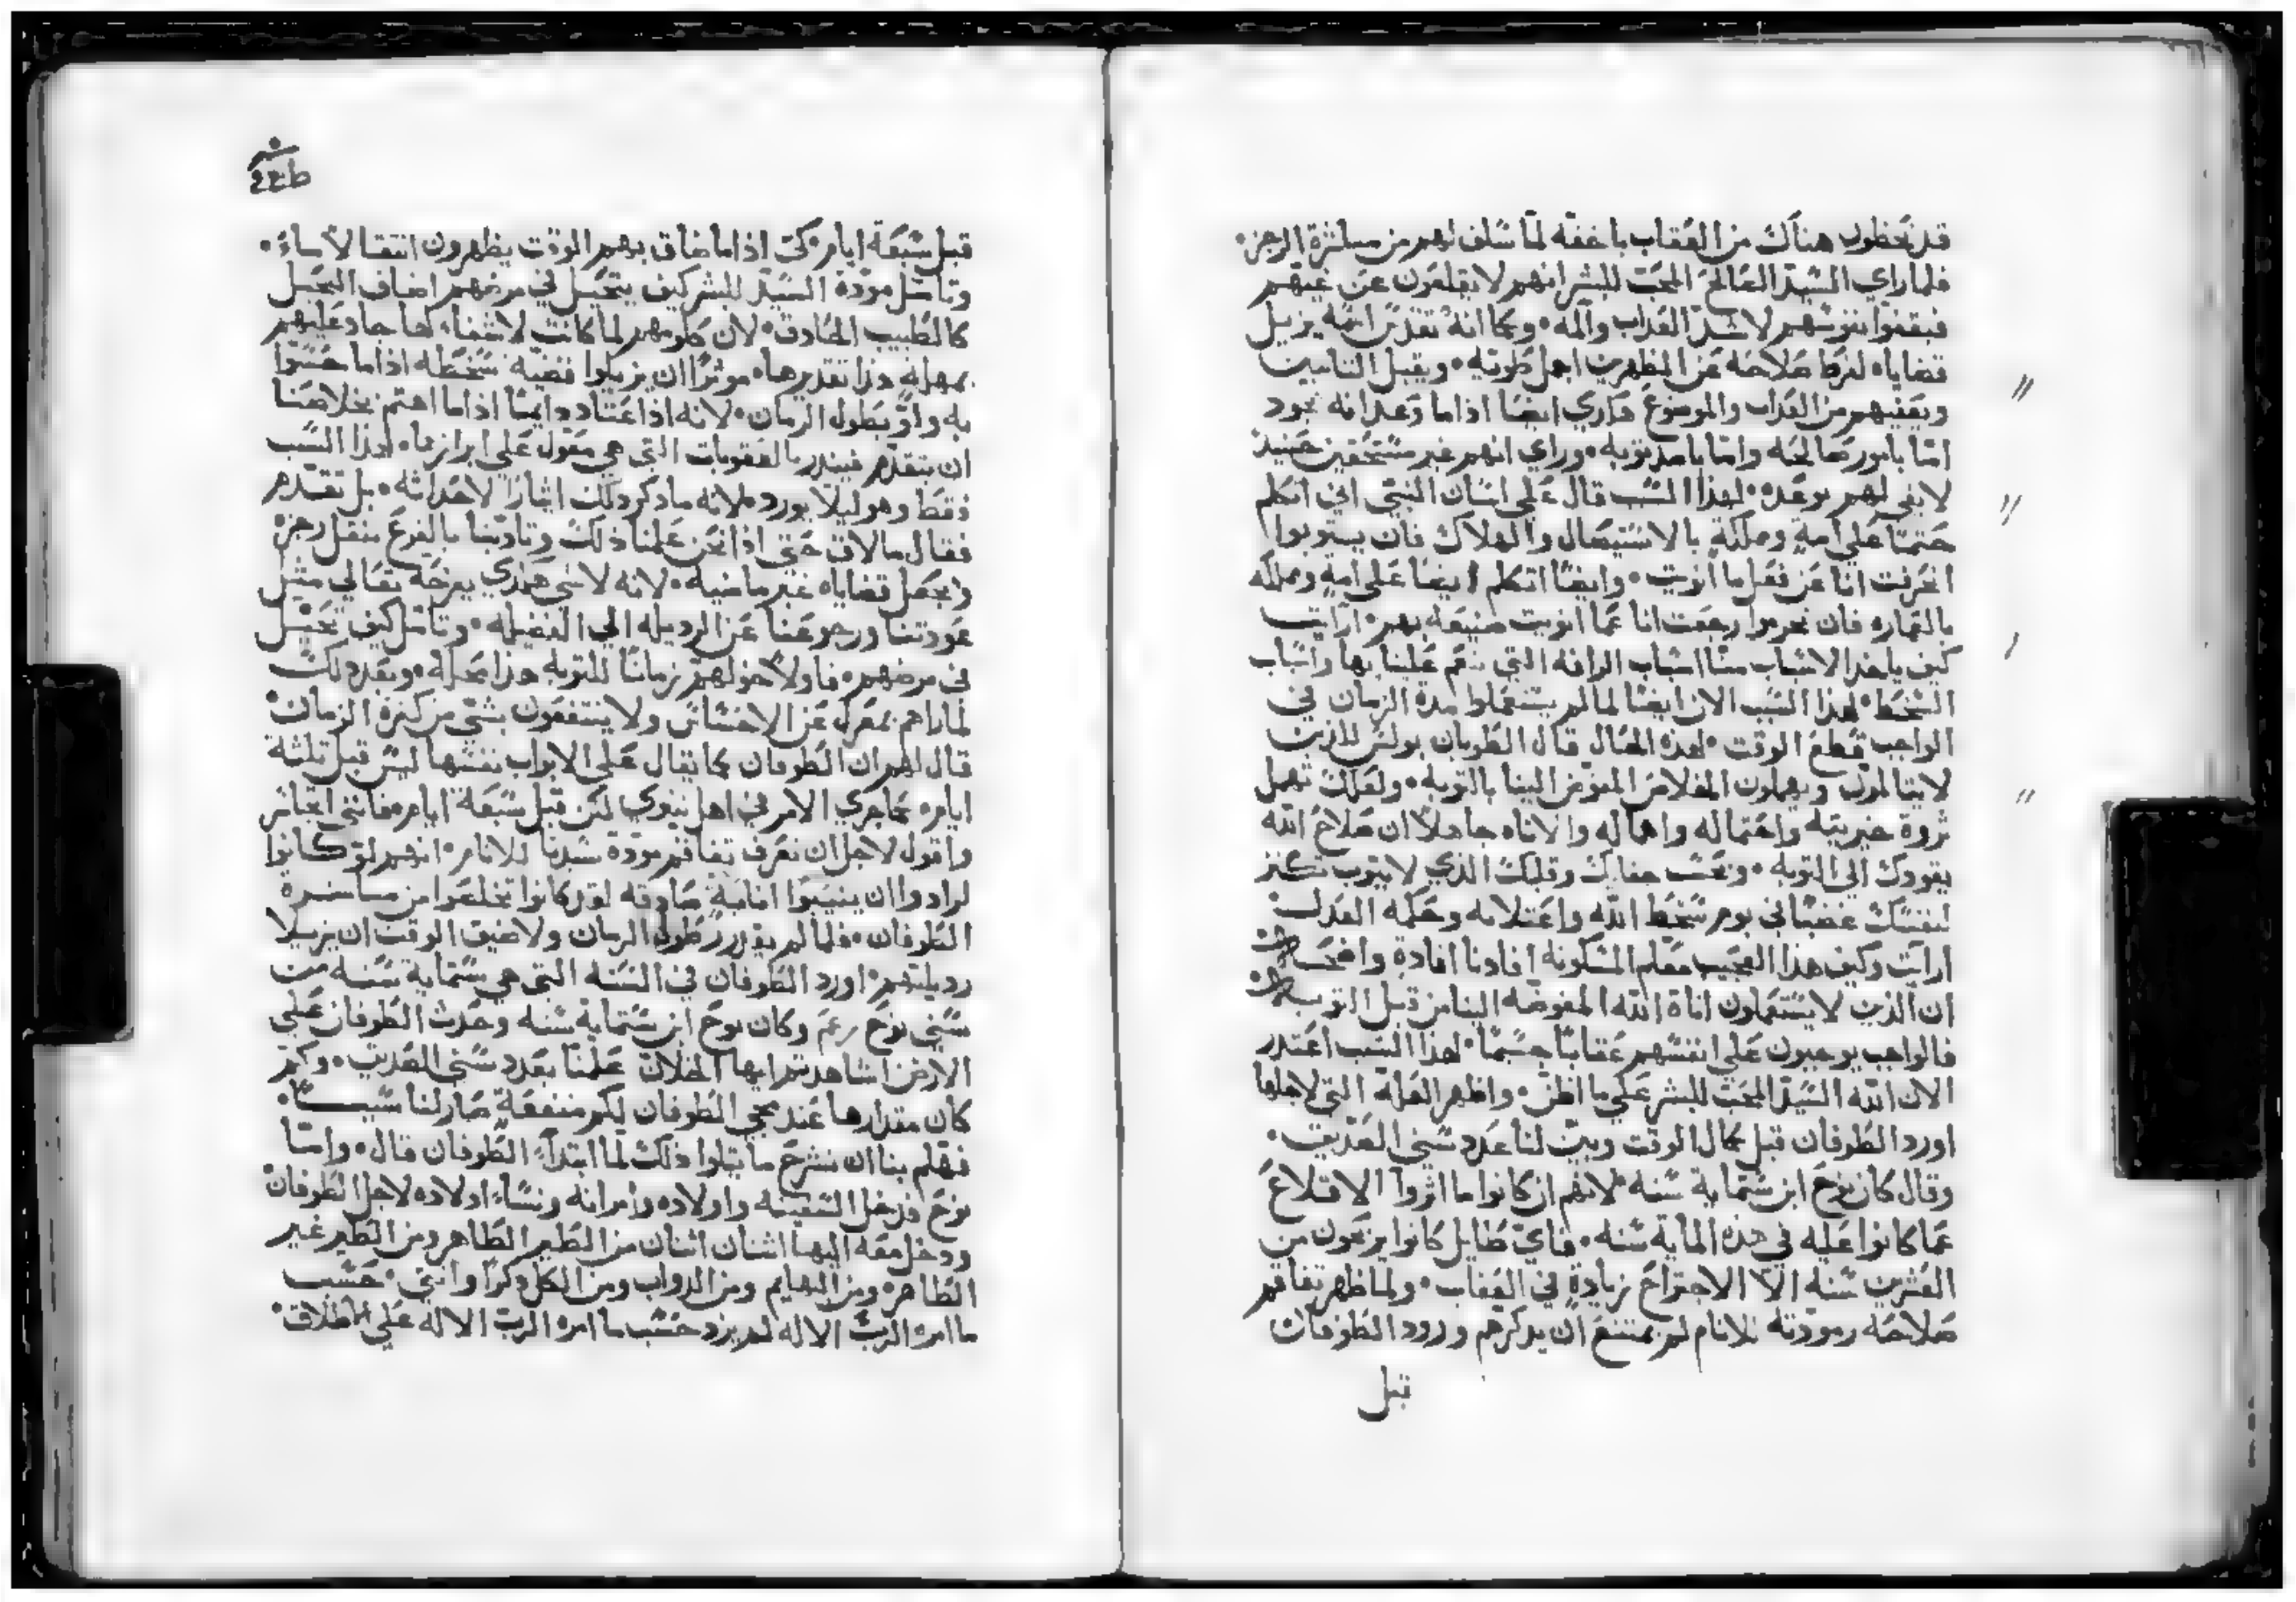 قد يحظون هناك من العقاب باخفه لما سلف لهم من مباشرة الرجز•
فلما راي السيد الصالح المحب للبشر انهم لا يقلعون عن غيهم
لاشد العذاب والمه• وكما انه تقدس اسمه يزيل
قضاياه لفرط صلاحه عن المظهرين اجمل طويه• ويقبل التايبين
ويعفيهم من العذاب والموضوع هكذي ايضا اذا ما وعد انه يجود
امّا بامور صالحه وامّا بامد توبه• وراي انهم غير مستحقين حينيذ
لا يفي لهم بوعده• لهذا السبب قال علي لسان النبي اني اتكلم
حتمًا علي امةٍ ومملكةٍ بالاستيصال والهلاك فان يتوبوا
انحرفت انا عن فعل ما انويت• وايضًا اتكلم ايضا علي امةٍ ومملكه
بالعماره فان يجرموا رجعت انا عما انويت صنيعه بهم• ارايت
كيف ياخذ الاسباب منّا اسباب الرافه التي ينعم علينا بها واسباب
السخط• لهذا السبب الان ايضًا لما لم يستعملوا مدة الزمان في
الواجب قطع الوقت• لهذه الحال قال الطوبان بولس للذين
لا يتالمون ويهملون الخلاص المفوض الينا بالتوبه• ولعلك تهمل
ثروة خيريته واحتماله وامهاله والاناه جاهلًا ان صلاح الله
يقودك الي التوبه• وبحسب جفايك وقلبك الذي لا يتوب تكنز
لنفسك غضبًا في يوم سخط الله واعتلانه وحكمه العدل
ارايت وكيف هذا العجيب معلم المسكونه افادنا افادةٍ واضحه
ان الذين لا يستعملون اناة الله المفوضه الينا من قبل التوبه
فالواجب يوجبون علي انفسهم عقابًا جسيمًا• لهذا السبب اعتذر
الان الله السيد المحب للبشر علي ما اظن• واظهر العلة التي لاجلها
اورد الطوفان قبل كمال الوقت وبين لنا عدد سني الصديق•
وقال كان نوح ابن ستماية سنه• لانهم ان كانوا ما اثروا الاقلاع
عما كانوا عليه في هذه الماية سنه• فاي طايل كانوا يزمعون من
العشرين سنه الا الاجتراح زيادةٍ في العقاب• ولما ظهر تفاقم
صلاحه ومودته للانام لم يمتنع ان يذكرهم ورود الطوفان
قبل
قبل سبعة ايام• كي اذا ما ضاق بهم الوقت يظهرون انتقالا ساءَ•
وتامل مودة السيد للبشر كيف يتحيل في مرضهم اصناف التحيل
كالطبيب الحاذق• لان كلومهم لما كانت لا شفاء لها جاد عليهم
بمهلةٍ هذا تقديرها• موثرًا ان يزيلوا قضيّة سخطه اذا ما حسّوا
به ولو بطول الزمان• لانه اذ اعتاد دايمًا اذا ما اهتم بخلاصنا
ان يتقدم فينذر بالعقوبات التي هي معول علي ابرازها• لهذا السبب
فقط وهو ليلا يورد ملانه ما ذكر ذلك ايثارًا لاحداثه• بل تقدم
فقال ما لاق حتي اذا نحن علمنا ذلك وتادبنا بالفزع ننقل رجزه
ونجعل قضاياه غير ماضيه• لانه لا شي هكذي يفرحه تعالي مثل
عودتنا ورجوعنا عن الرديله الي الفضيله• وتامل كيف تحيل
في مرضهم• فاولًا خولهم زمانًا للتوبه هذا مبلغه• وبعد ذلك
لما راهم بمعزل عن الاحساس ولا ينتفعون بشي من كثرة الزمان•
قال لهم ان الطوفان كما يقال علي الابواب نفسها ليس قبل ثلثة
ايام• كما جري الامر في اهل نينوي لكن قبل سبعة ايام•
واقول لاجل ان نعرف تفاقم مودة سيدنا للانام• انهم لو كانوا
ارادوا ان ينيبوا انابةٍ صادقه لقد كانوا تخلصوا من مباشرة
الطوفان• فلما لم يقدر طول الزمان ولا ضيق الوقت ان يزيلا
رديلتهم• اورد الطوفان في السنه التي هي ستماية سنه من
سني نوح زعم وكان نوح ابن ستماية سنه وحدث الطوفان علي
الارض• اشاهدتم ايها الخلان علمنا بعدد سني الصديق• وكم
كان مقدارها عند مجي الطوفان لكم منفعةٍ صار لنا سببًا•
فهلم بنا ان نشرح ما يتلوا ذلك لما ابتدآ الطوفان قال• وامّا
نوح فدخل السفينه واولاده وامراته ونساء اولاده لاجل الطوفان
ودخل معه اليها اثنان اثنان من الطير الطاهر ومن الطير غير
الطاهر• ومن البهايم ومن الدواب ومن الكل ذكرًا وانثي• حسب
ما امره الرب الاله لم يزد حسب ما امره الرب الاله علي الاطلاق•